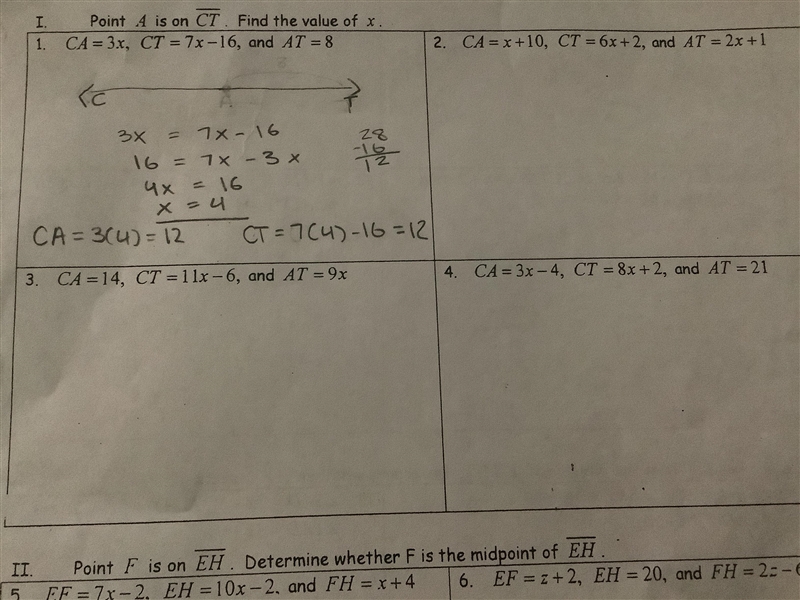 I. Point A is on CT. Find the value of x.
1. CA = 3x, CT = 7x−16, and AT = 8
C A T
3x = 7x − 16
16 = 7x − 3x
4x = 16
x = 4
28
-16
12
CA = 3(4) = 12 CT = 7(4) − 16 = 12
2. CA = x+10, CT = 6x+2, and AT = 2x+1
3. CA = 14, CT = 11x−6, and AT = 9x
4. CA = 3x−4, CT = 8x+2, and AT = 21
II. Point F is on EH. Determine whether F is the midpoint of EH.
5. EF = 7x−2, EH = 10x−2, and FH = x+4
6. EF = z+2, EH = 20, and FH = 2z−